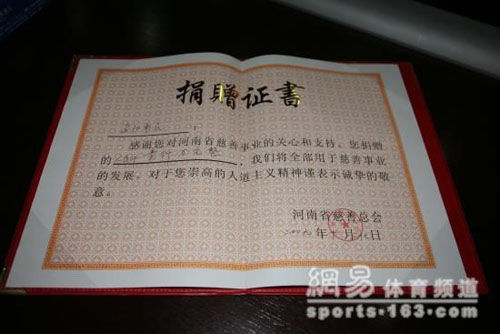 捐赠证书
感谢您对河南省慈善事业的关心和支持。您捐赠
的 我们将全部用于慈善事业
的发展。对于您崇高的人道主义精神谨表示诚挚的敬
意。
河南省慈善总会
月 日
網易 体育频道
sports.163.com